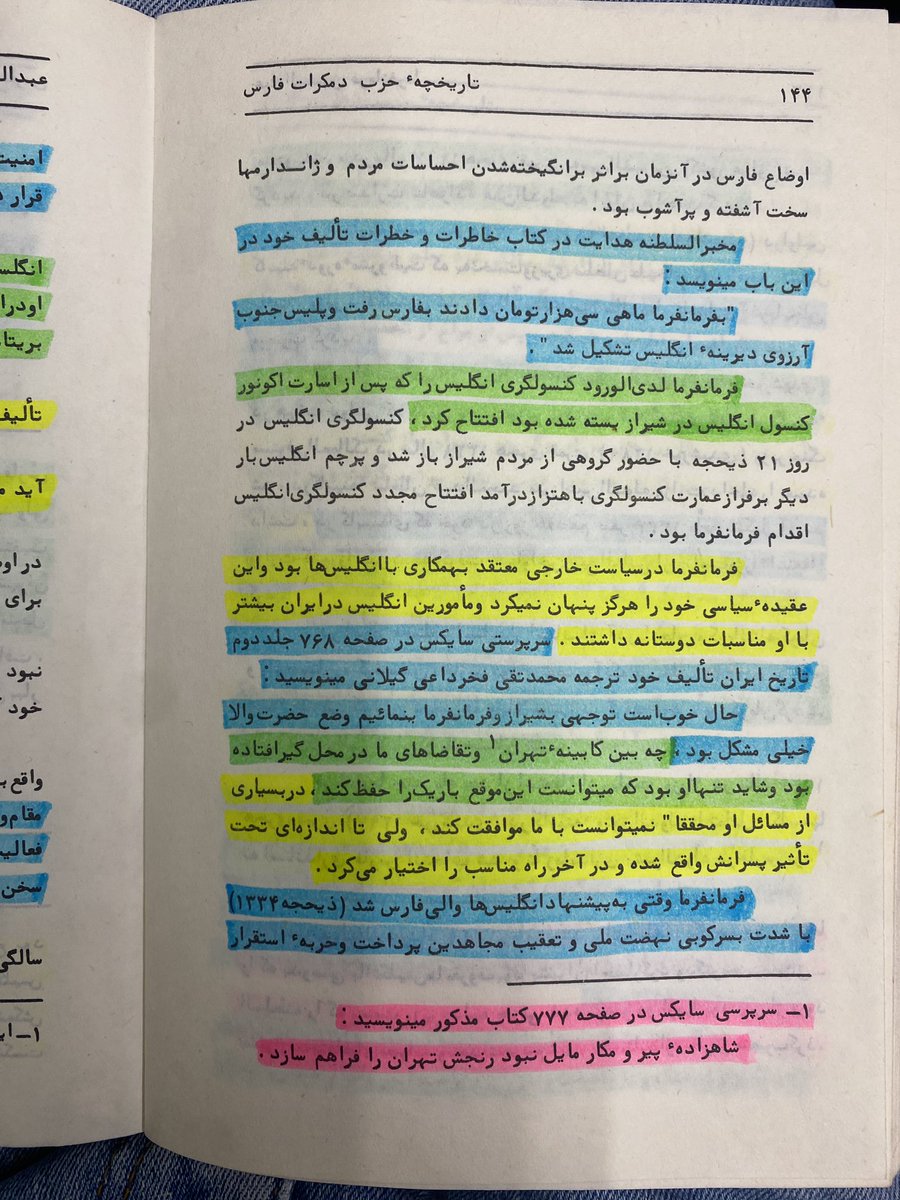 ۱۴۴
تاریخچهٔ حزب دمکرات فارس
اوضاع فارس در آنزمان براثر برانگیخته‌شدن احساسات مردم و ژانـدارمها
سخت آشفته و پرآشوب بود .
مخبرالسلطنه هدایت در کتاب خاطرات و خطرات تألیف خود در
این باب مینویسد :
"بفرمانفرما ماهی سی‌هزارتومان دادند بفارس رفت وپلیس‌جنوب
آرزوی دیرینهٔ انگلیس تشکیل شد" .
فرمانفرما لدی‌الورود کنسولگری انگلیس را که پس از اسارت اکونور
کنسول انگلیس در شیراز بسته شده بود افتتاح کرد ، کنسولگری انگلیس در
روز ۲۱ ذیحجه با حضور گروهی از مردم شیراز باز شد و پرچم انگلیس‌بار
دیگر برفرازعمارت کنسولگری باهتزازدرآمد افتتاح مجدد کنسولگری‌انگلیس
اقدام فرمانفرما بود .
فرمانفرما درسیاست خارجی معتقد بهمکاری باانگلیس‌ها بود واین
عقیدهٔ سیاسی خود را هرگز پنهان نمیکرد ومأمورین انگلیس درایران بیشتر
با او مناسبات دوستانه داشتند . سرپرستی سایکس در صفحه ۷۶۸ جلددوم
تاریخ ایران تألیف خود ترجمه محمدتقی فخرداعی گیلانی مینویسید :
حال خوب‌است توجهی بشیرازوفرمانفرما بنمائیم وضع حضرت‌والا
خیلی مشکل بود ، چه بین کابینهٔ تهران۱ وتقاضاهای ما در محل گیرافتاده
بود وشاید تنهااو بود که میتوانست این‌موقع باریک‌را حفظ‌کند ، دربسیاری
از مسائل او محققا" نمیتوانست با ما موافقت کند ، ولی تا اندازه‌ای تحت
تأثیر پسرانش واقع شده و در آخر راه مناسب را اختیار می‌کرد .
فرمانفرما وقتی به‌پیشنهادانگلیس‌ها والی‌فارس شد (ذیحجه۱۳۳۴)
با شدت بسرکوبی نهضت ملی و تعقیب مجاهدین پرداخت وحربهٔ استقرار
۱– سرپرسی سایکس در صفحه ۷۷۷ کتاب مذکور مینویسید :
شاهزادهٔ پیر و مکار مایل نبود رنجش تهران را فراهم سازد .
امنیت
قرار
تألیف
آید
برای
نبود
خود
مقام‌و
سخن
سالگی